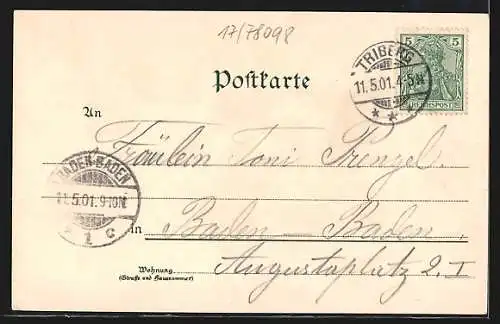 17/78098
5 5
REICHSPOST
TRIBERG
11.5.01.4-5N.
* * *
Postkarte
An
Fräulein Toni Prengel.
BADEN-BADEN
11.5.01.9-10N.
* 1 c
in Baden-Baden.
Augustaplatz 2. I
Wohnung
(Straße und Hausnummer)